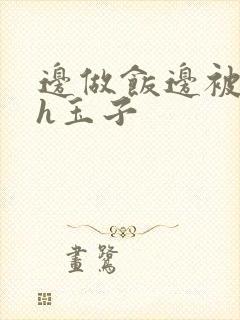 邊做飯邊被
h玉子
畫鷺